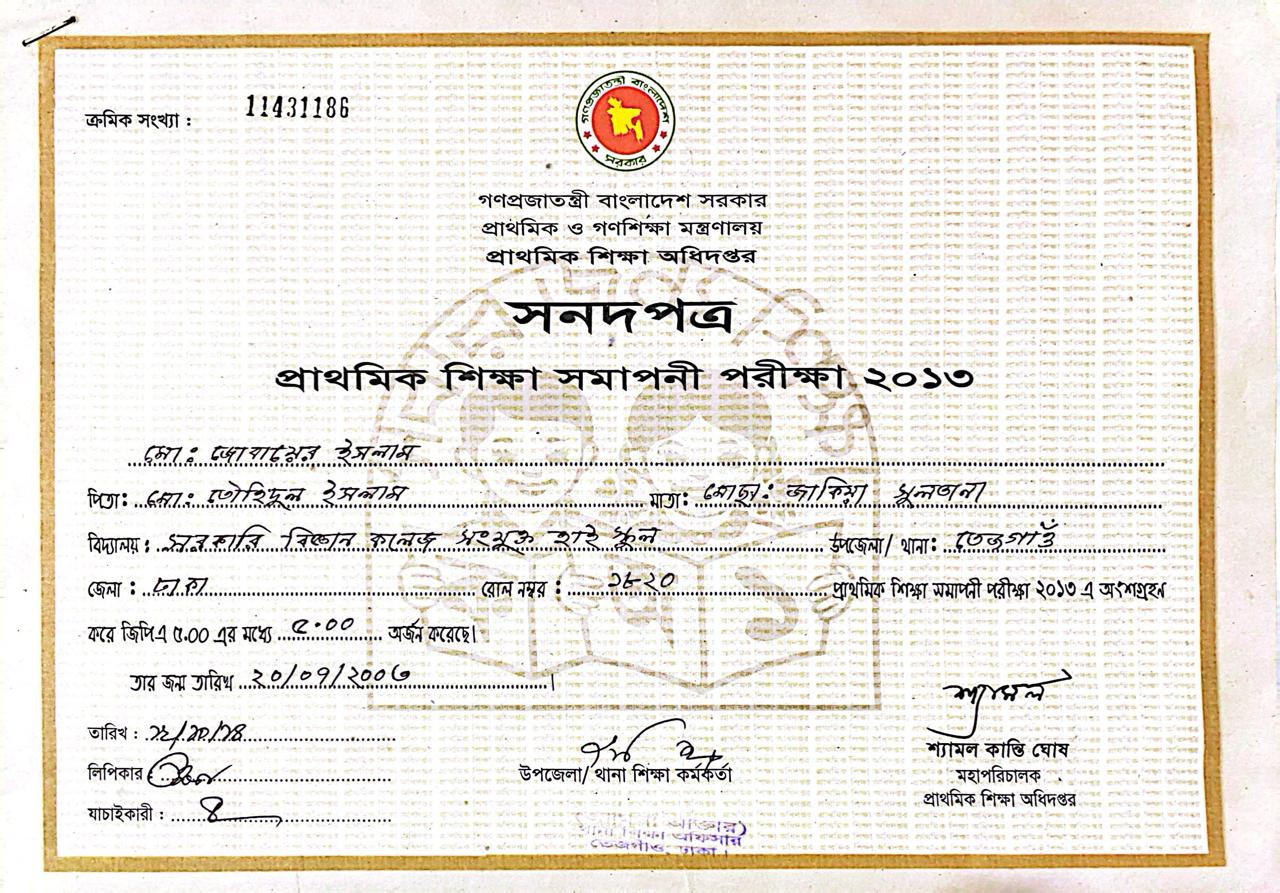 ক্রমিক সংখ্যা : 11431186
গণপ্রজাতন্ত্রী বাংলাদেশ
সরকার
গণপ্রজাতন্ত্রী বাংলাদেশ সরকার
প্রাথমিক ও গণশিক্ষা মন্ত্রণালয়
প্রাথমিক শিক্ষা অধিদপ্তর
সনদপত্র
প্রাথমিক শিক্ষা সমাপনী পরীক্ষা ২০১৩
মো: জোবায়ের ইসলাম
পিতা: মো: তৌহিদুল ইসলাম মাতা: মোছা: জাকিয়া সুলতানা
বিদ্যালয় : সরকারি বিজ্ঞান কলেজ সংযুক্ত হাই স্কুল উপজেলা/ থানা: তেজগাঁও
জেলা : ঢাকা রোল নম্বর : প্রাথমিক শিক্ষা সমাপনী পরীক্ষা ২০১৩ এ অংশগ্রহন
করে জিপিএ ৫.০০ এর মধ্যে ৫.০০ অর্জন করেছে।
তার জন্ম তারিখ
তারিখ :
শ্যামল
লিপিকার
উপজেলা/ থানা শিক্ষা কর্মকর্তা
শ্যামল কান্তি ঘোষ
মহাপরিচালক
প্রাথমিক শিক্ষা অধিদপ্তর
যাচাইকারী :
থানা শিক্ষা অফিসার
তেজগাঁও, ঢাকা।